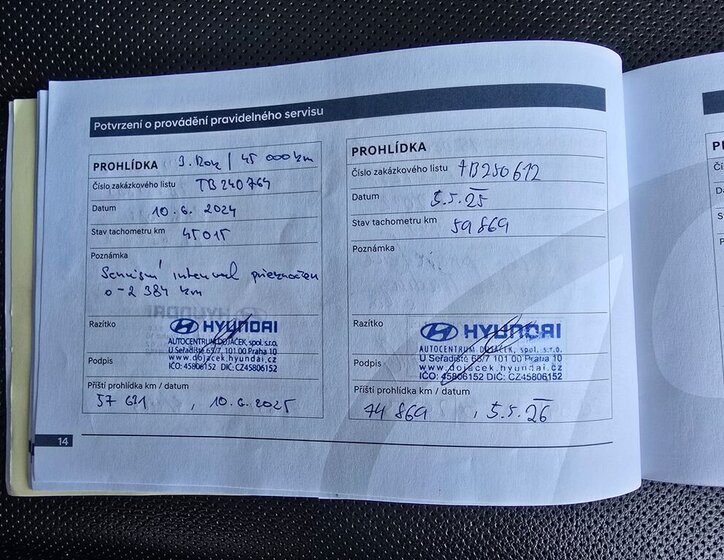 Potvrzení o provádění pravidelného servisu
PROHLÍDKA 3. Rok / 45 000 km
Číslo zakázkového listu TB 240764
Datum 10. 6. 2024
Stav tachometru km 45015
Poznámka
Servisní interval překročen
o -2 384 km
Razítko
HYUNDAI
AUTOCENTRUM DOJÁČEK, spol. s r.o.
U Seřadiště 65/7, 101 00 Praha 10
www.dojacek.hyundai.cz
IČO: 45806152 DIČ: CZ45806152
Podpis
Příští prohlídka km / datum
57 631 , 10. 6. 2025
PROHLÍDKA
Číslo zakázkového listu TB250612
Datum 5.5.25
Stav tachometru km 59 869
Poznámka
Razítko
HYUNDAI
AUTOCENTRUM DOJÁČEK, spol. s r.o.
U Seřadiště 65/7, 101 00 Praha 10
www.dojacek.hyundai.cz
IČO: 45806152 DIČ: CZ45806152
Podpis
Příští prohlídka km / datum
74 869 , 5.5.26
14